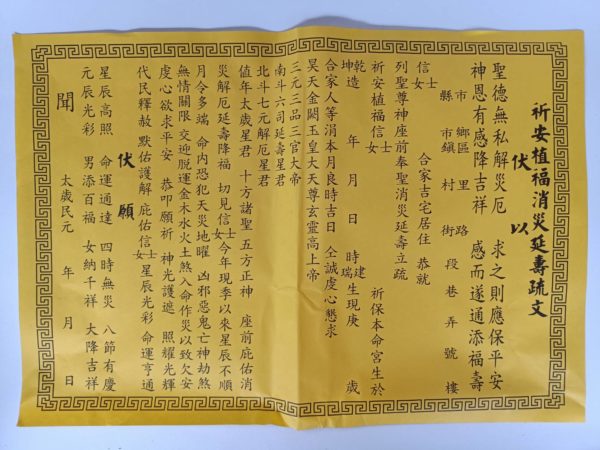 祈安植福消災延壽疏文
伏以
聖德無私解災厄 求之則應保平安
神恩有感降吉祥 感而遂通添福壽
市 鄉區 里 路
縣 市鎮 村 街 段 巷 弄 號 樓
信士女 合家吉宅居住 恭就
列聖尊神座前奉聖消災延壽立疏
祈安植福信士女 祈保本命宮生於
乾造 年 月 日 時建生現庚 歲
坤造 瑞
合家人等涓本月良時吉日 仝誠虔心懇求
昊天金闕玉皇大天尊玄靈高上帝
三元三品三官大帝
南斗六司延壽星君
北斗七元解厄星君
值年太歲星君 十方諸聖 五方正神 座前庇佑消
災解厄延壽降福 切見信士女今年現季以來星辰不順
月令多端 命內恐犯天災地曜 凶邪惡鬼亡神劫煞
無情關限 交迎脫運金木水火土煞入命作災以致欠安
虔心欲求平安 恭叩願祈 神光護遮 照耀光輝
代民釋赦 默佑護解 庇佑信士女星辰光彩 命運亨通
伏願
星辰高照 命運通達 四時無災 八節有慶
元辰光彩 男添百福 女納千祥 大降吉祥
聞 太歲民元 年 月 日